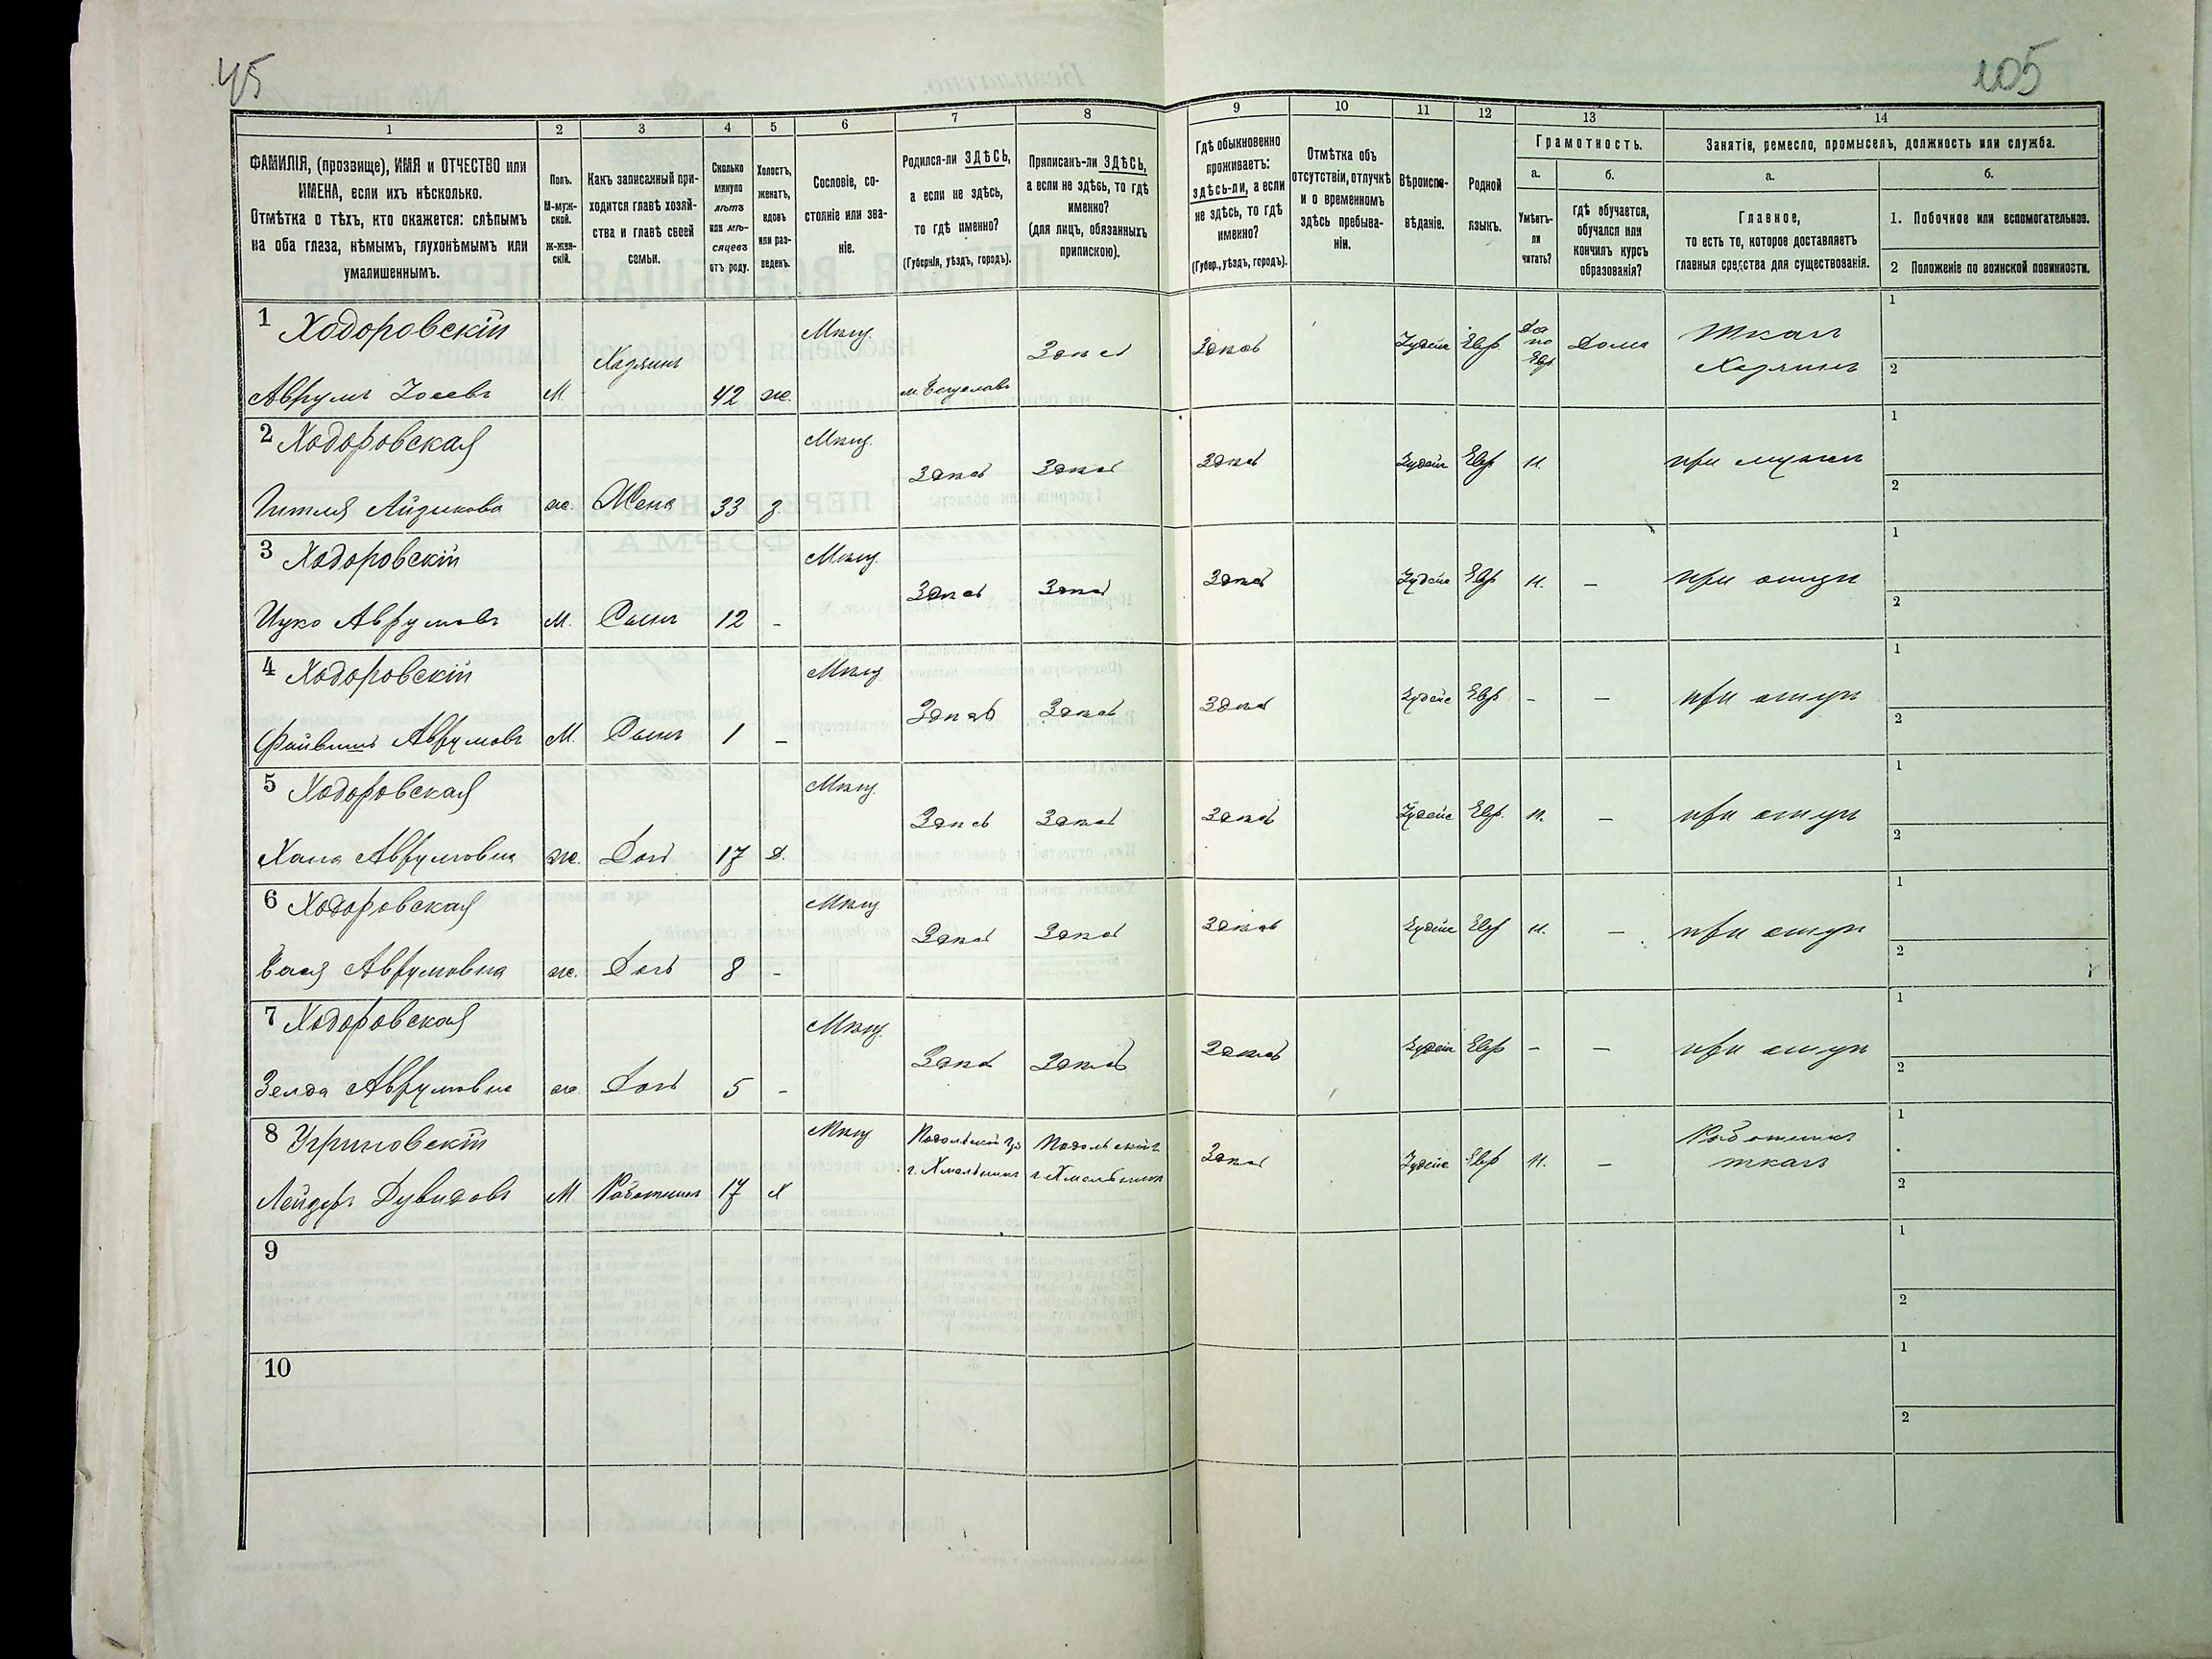 45
105
1
2
3
4
5
6
7
8
9
10
11
12
13
14
ФАМИЛІЯ, (прозвище), ИМЯ и ОТЧЕСТВО или
ИМЕНА, если ихъ нѣсколько.
Отмѣтка о тѣхъ, кто окажется: слѣпымъ
на оба глаза, нѣмымъ, глухонѣмымъ или
умалишеннымъ.
Полъ.
М-муж-
ской.
Ж-жен-
скій.
Какъ записанный при-
ходится главѣ хозяй-
ства и главѣ своей
семьи.
Сколько
минуло
лѣтъ
или мѣ-
сяцевъ
отъ роду.
Холостъ,
женатъ,
вдовъ
или раз-
веденъ.
Сословіе, со-
стояніе или зва-
ніе.
Родился-ли ЗДѢСЬ,
а если не здѣсь,
то гдѣ именно?
(Губернія, уѣздъ, городъ).
Приписанъ-ли ЗДѢСЬ,
а если не здѣсь, то гдѣ
именно?
(для лицъ, обязанныхъ
припискою).
Гдѣ обыкновенно
проживаетъ:
здѣсь-ли, а если
не здѣсь, то гдѣ
именно?
(Губер., уѣздъ, городъ).
Отмѣтка объ
отсутствіи, отлучкѣ
и о временномъ
здѣсь пребыва-
ніи.
Вѣроиспо-
вѣданіе.
Родной
языкъ.
Грамотность.
а.
Умѣетъ-
ли
читать?
б.
гдѣ обучается,
обучался или
кончилъ курсъ
образованія?
Занятіе, ремесло, промыселъ, должность или служба.
а.
Главное,
то есть то, которое доставляетъ
главныя средства для существованія.
б.
1. Побочное или вспомогательное.
2 Положеніе по воинской повинности.
1 Ходоровскій
Аврумъ Іосевъ М. Хазяинъ 42 ж. Мѣщ. Здѣсь Здѣсь Іудейс Евр Да по Евр Дома Ткачъ Хазяинъ 1 2
2 Ходоровская
Гитля Айзикова ж. Жена 33 з Мѣщ. Здѣсь Здѣсь Здѣсь Іудейс Евр н. при мужѣ 1 2
3 Ходоровскій
Ицко Аврумовъ М. Сынъ 12 - Мѣщ. Здѣсь Здѣсь Здѣсь Іудейс Евр н. — при отцѣ 1 2
4 Ходоровскій
Файвишъ Аврумовъ М. Сынъ 1 - Мѣщ Здѣсь Здѣсь Здѣсь Іудейс Евр - — при отцѣ 1 2
5 Ходоровская
Хана Аврумовна ж. Дочь 17 д. Мѣщ. Здѣсь Здѣсь Здѣсь Іудейс Евр. н. — при отцѣ 1 2
6 Ходоровская
Аврумовна ж. Дочь 8 - Мѣщ Здѣсь Здѣсь Здѣсь Іудейс Евр н. — при отцѣ 1 2
7 Ходоровская
Зелда Аврумовна ж. Дочь 5 - Мѣщ. Здѣсь Здѣсь Здѣсь Іудейс Евр - — при отцѣ 1 2
8 Угриновскій
Лейзеръ Дувидовъ М. Работникъ 17 х Мѣщ Подольской гу г. Хмельникъ Подольской г. г. Хмельникъ Здѣсь Іудейс Евр н. — Работникъ ткачъ 1 2
9 1 2
10 1 2